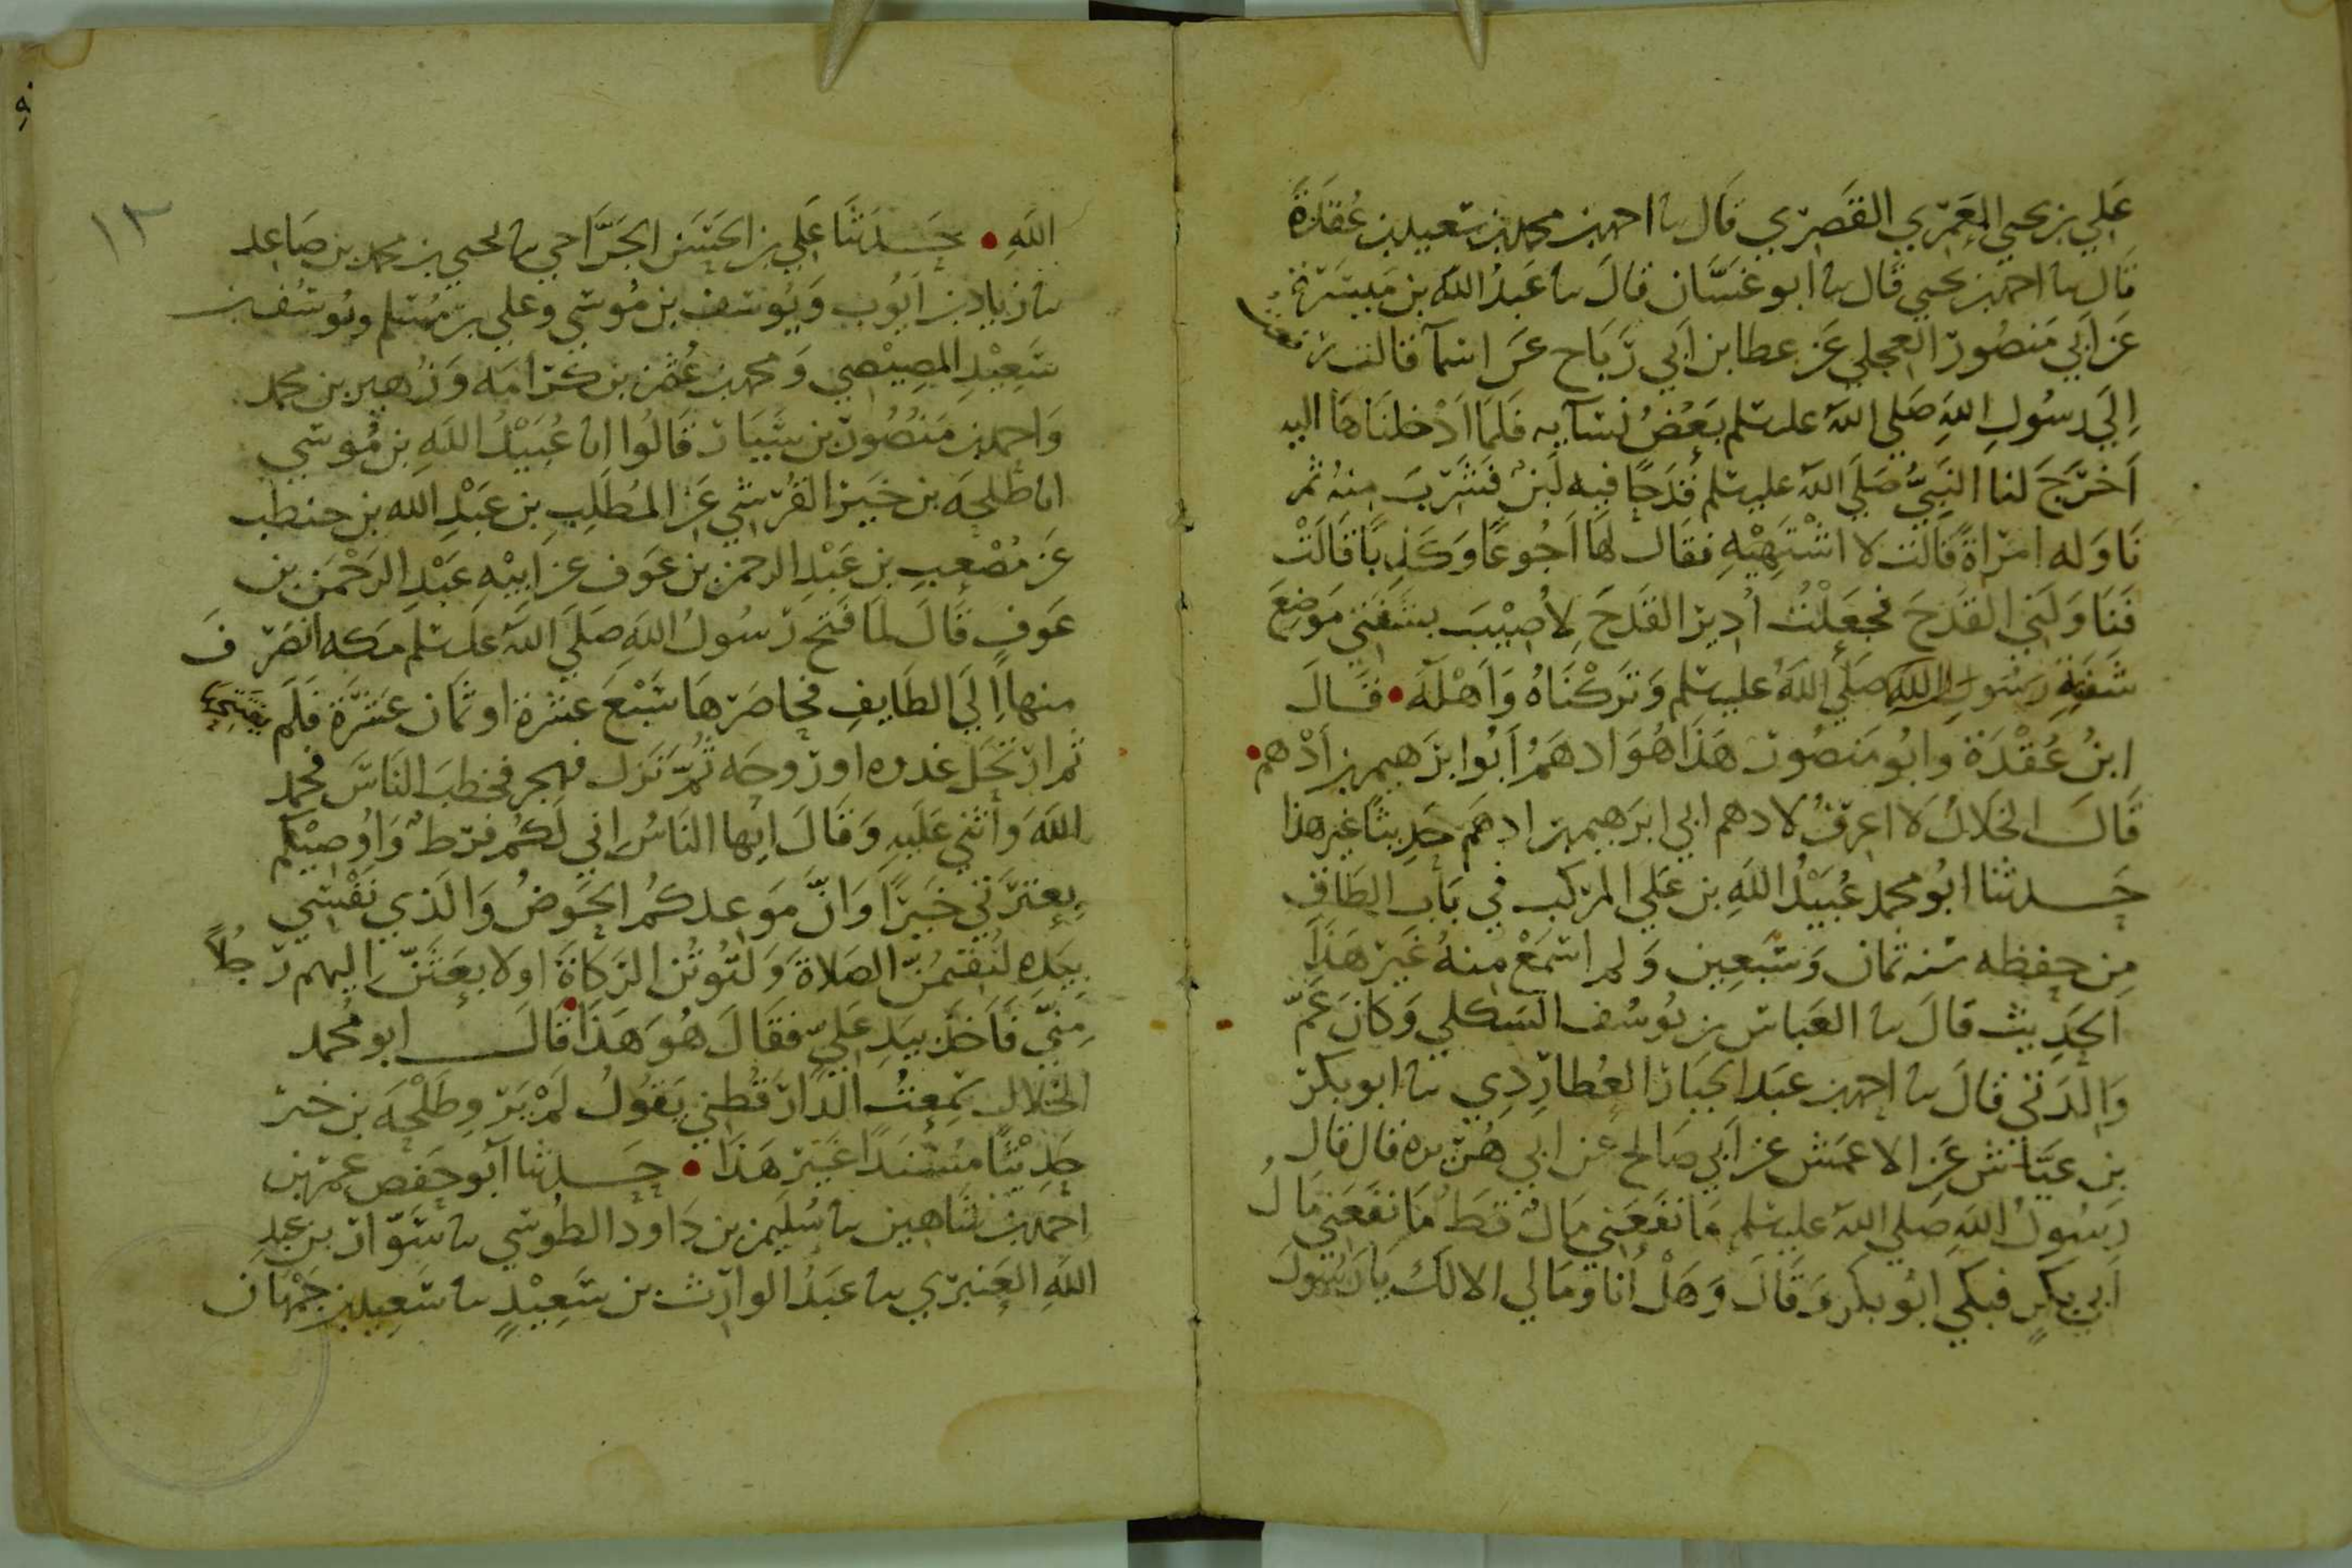 علي بن يحيى المعمري القصري قال نا احمد بن محمد بن سعيد بن عُقدَة
قال نا احمد بن يحيى قال نا ابو غسَّان قال نا عَبدُ الله بن مَيسَرة
عَن ابي مَنصُور العجلي عَن عطا بن اَبي رَبَاح عَن اسمآ قالت
اِلَى رسُولِ اللهِ صَلى اللهُ عليه سلم بَعْضُ نسَآيِه فَلَمَّا اَدْخلنَاهَا اليه
اَخرَجَ لنا النَبيُّ صَلَى اللهُ عليه سلم قَدَحًا فيه لَبنٌ فشَرِبَ مِنهُ ثم
نَاوَله امرَاةً قَالَت لا اشْتَهِيْهِ فقال لهَا اَجُوعًا وَكَذِبًا قَالَتْ
فَنَاوَلَني القَدَحَ فجعَلْتُ اُدِيرُ القَدَحَ لِاُصِيْبَ بشفَتي مَوضِعَ
شَفَةِ رَسُولِ اللهِ صَلَى اللهُ عليه سلم وَتَرَكْنَاهُ وَاَهْلَهُ • قَالَ
ابنُ عُقْدَة وابُو مَنصُور هَذَا هُوَ ادهَمُ اَبُوا ابرَهيم بن اَدْهم •
قَالَ الخَلالُ لَا اعرِفُ لادهم ابي ابرَهيم بن ادهَم حَدِيثًا غير هذا
حَدثنا ابُو محمد عُبَيْدُ اللهِ بن عَلي المركب في بَاب الطَاق
مِن حِفظه سنه ثمان وَسَبعِين وَلم اسمَعْ مِنهُ غَير هَذَا
الحَدِيث قالَ نا العَباس بن يُوسُف الشكلي وَكانَ عَمّ
وَالِدَتي قالَ نا احمد بن عَبد الجبَار العُطارِدِي نا ابو بكر
بن عيَّاش عَن الاعمَش عن اَبي صَالح عن ابي هُريره قال قال
رَسُولُ اللهِ صَلى اللهُ عليه سلم مَا نفَعَني مَالٌ قط مَا نفَعَني مَالُ
اَبي بكرٍ فبَكى ابُو بكر وَقَالَ وَهَلْ اَنا وَمَالي الا لكَ يَا رَسُولَ
١٣
اللهِ • حَدثنَا عَلي بن الحَسَن الجَرَّاحي نا يحيى بن محمد بن صَاعد
نا زياد بن اَيُوب وَيُوسُف بن مُوسَى وعلي بن مُسْلم ويُوسُف بن
سَعِيْدِ المِصِيْصي وَمحمد بن عُثمن بن كرَامَه وَزُهير بن محمد
وَاحمد بن مَنْصُور بن سَيَّار قَالُوا انا عُبَيْدُ اللهِ بن مُوسَى
انا طَلحَه بن خَيرَ القُرَشي عَن المُطَلِبِ بن عَبْدِ الله بن حنطب
عَن مُصْعبِ بن عَبْدِ الرحمن بن عَوف عن ابيْهِ عَبْدِ الرَحْمَن بن
عَوفٍ قَالَ لمَا فَتحَ رَسُولُ اللهِ صَلَى اللهُ عليه سلم مَكه انصَرَفَ
منها اِلَى الطَايِفِ فحَاصَرَهَا سَبْعَ عشرة او ثمَان عَشْرَة فَلَم يفتتحهَا
ثم ارتحَل غدوه او رَوحَه ثُمَّ نَزل فهجر فخطبَ النَاسَ فحمد
اللهَ وَاثنى عَلَيهِ وَقَالَ ايها النَاسُ اني لَكُم فرَط وَاوُصِيْكم
بِعِتْرَتي خَيرًا وَانَّ مَوعدكُمُ الحَوضُ وَالَذي نَفْسي
بيَدِهِ لتُقِيمُنَّ الصَلاةَ وَلتُوتُن الزكَاةَ او لابعَثَنَّ اليهم رَجُلاً
مِنيِّ فَاَخذ بيَدِ عَليّ فقَالَ هُوَ هَذَا • قَالَ ابو محمد
الخلال سَمِعتُ الدَارَقُطني يَقُولُ لمْ يَرْوِ طَلْحَه بن خبر
حَدِيْثًا مُسْنَدًا غَيرَ هَذَا • حَدثنا اَبو حَفص عمر بن
احمد بن شَاهِين نا سُليمن بن دَاود الطُوسي نا سَوّار بن عبدِ
اللهِ العَنبَري نا عَبدُ الوارث بن سَعِيْدٍ نا سَعِيد بن جَمْهَان